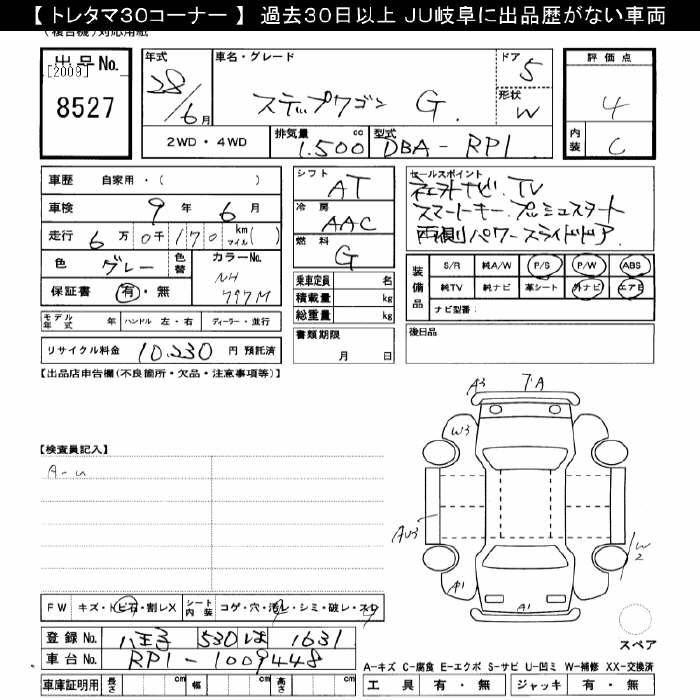 【 トレタマ30コーナー 】 過去30日以上 JU岐阜に出品歴がない車両
(複合機)対応用紙
出品No.
[2009]
8527
年式
28/6月
車名・グレード
ステップワゴン G
ドア
5
形状
W
評価点
4
内装
C
2WD・4WD
排気量
1.500 cc
型式
DBA-RP1
車歴 自家用・( )
車検 9年6月
走行 6万0千170 km マイル( )
色 グレー
色替
カラーNo.
NH
797M
保証書 有・無
モデル年式 年 ハンドル 左・右 ディーラー・並行
リサイクル料金 10.230 円 預託済
シフト
AT
冷房
AAC
燃料
G
乗車定員 名
積載量 kg
総重量 kg
書類期限
月 日
セールスポイント
ナビ. TV
スマートキー. プッシュスタート
両側パワースライドドア.
装備品
S/R 純A/W P/S P/W ABS
純TV 純ナビ 革シート 外ナビ エアB
ナビ型番:
後日品
【出品店申告欄(不良箇所・欠品・注意事項等)】
【検査員記入】
A-u
A3
ブA
W3
AU3
W2
A1
A1
スペア
FW キズ・トビ石・割レX
シート内装 コゲ・穴・汚レ・シミ・破レ・スレ
登録No. 八王子 530 ほ 1631
車台No. RP1-1009448
車庫証明用 長さ cm 幅 cm 高さ cm
A-キズ C-腐食 E-エクボ S-サビ U-凹ミ W-補修 XX-交換済
工具 有・無 ジャッキ 有・無